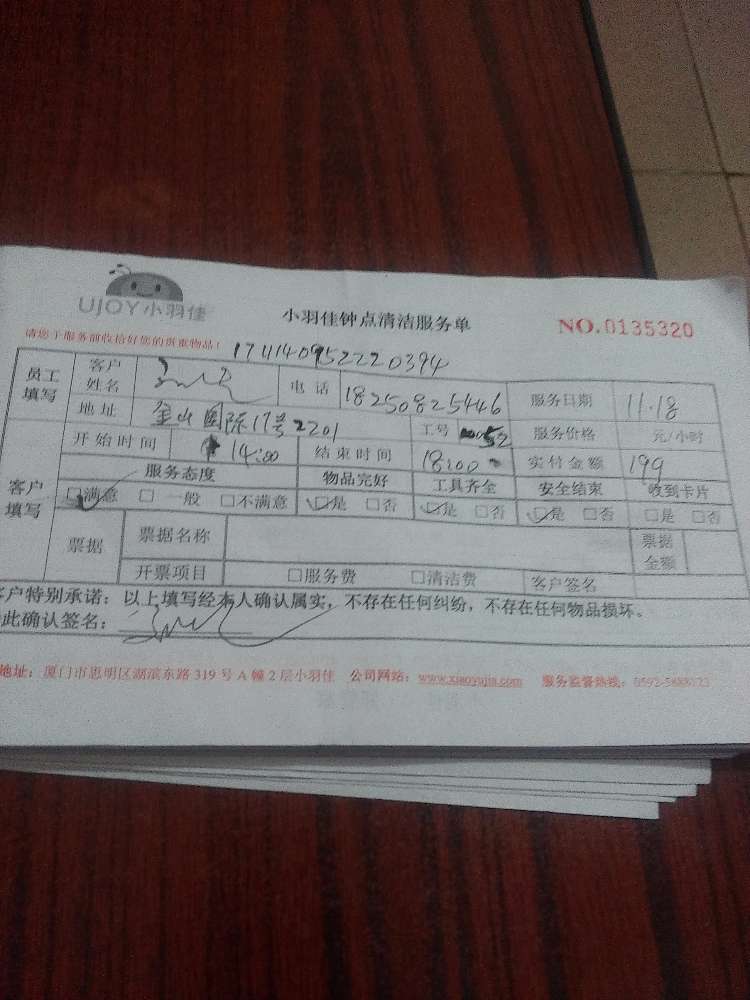 UJOY小羽佳
小羽佳钟点清洁服务单
NO.0135320
请您于服务前收拾好您的贵重物品！
171140952220394
员工填写 客户姓名 电话 18250825446 服务日期 11.18
地址 金山国际17号2201 工号 52 服务价格 元/小时
开始时间 14:00 结束时间 18:00 实付金额 199
客户填写 服务态度 物品完好 工具齐全 安全结束 收到卡片
□满意 □一般 □不满意 □是 □否 □是 □否 □是 □否 □是 □否
票据 票据名称 票据金额
开票项目 □服务费 □清洁费 客户签名
客户特别承诺：以上填写经本人确认属实，不存在任何纠纷，不存在任何物品损坏。
此确认签名：
地址：厦门市思明区湖滨东路319号A幢2层小羽佳 公司网站：www.xiaoyujia.com 服务监督热线：